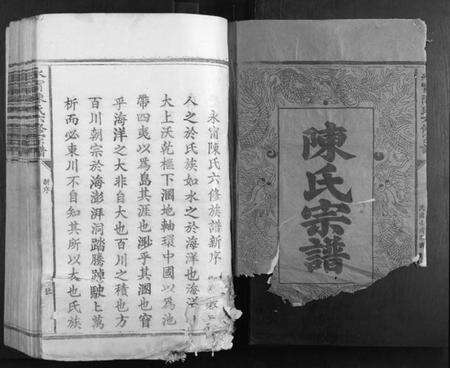 陳氏宗譜
永甯陳氏六修族譜新序
人之於氏族如水之於海洋也海洋
大上沃乾樞下溷地軸環中國以爲池
帶四夷以爲島其涯也渺乎其溷也窅
乎海洋之大非自大也百川之積也方
百川朝宗於海澎湃洞踏騰踔駛上萬
析而必東川不自知其所以大也氏族
新序